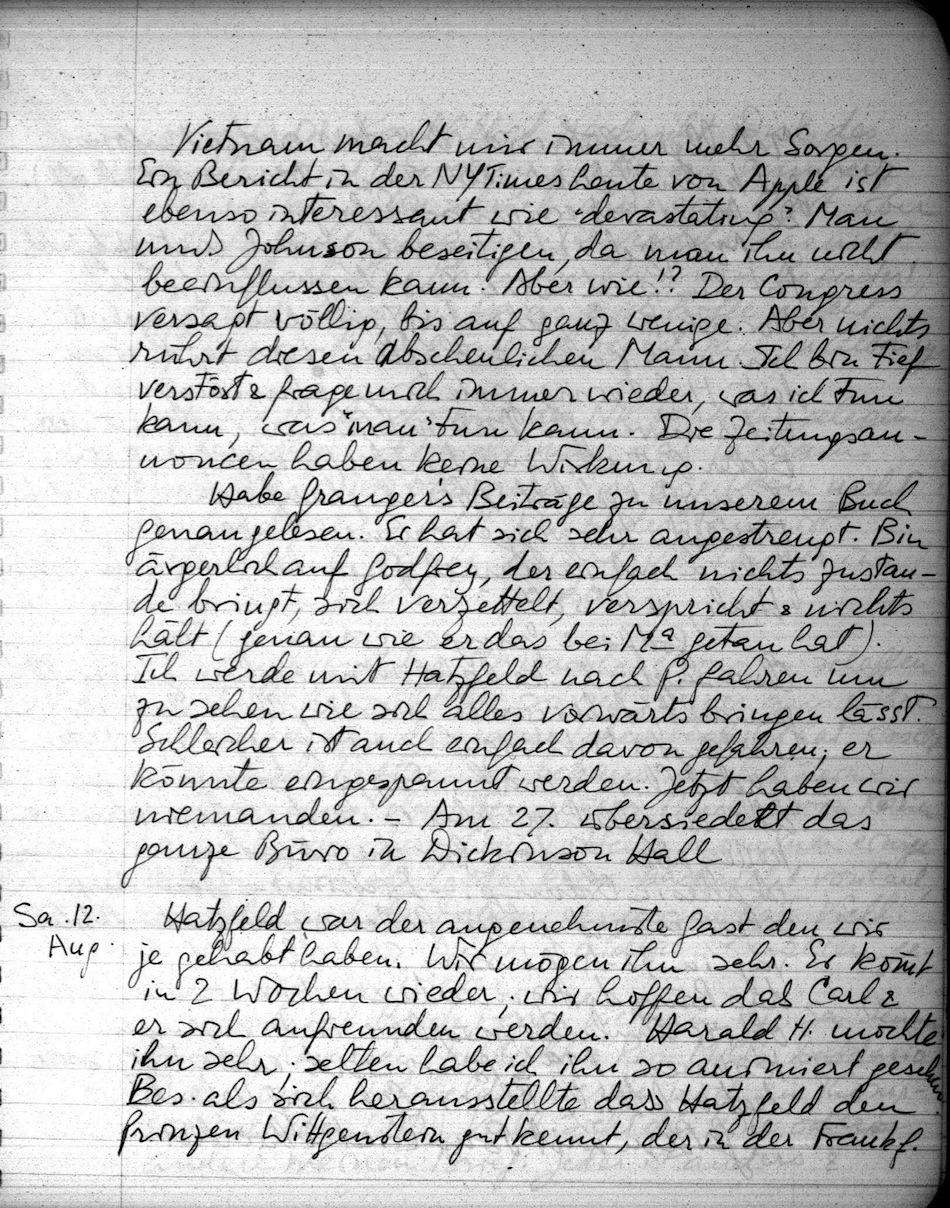 Vietnam macht mir immer mehr Sorgen.
Ein Bericht in der NYTimes heute von Apple ist
ebenso interessant wie "devastating". Man
muß Johnson beseitigen, da man ihn nicht
beeinflussen kann. Aber wie!? Der Congress
versagt völlig, bis auf ganz wenige. Aber nichts
rührt diesen abscheulichen Mann. Ich bin tief
verstört & frage mich immer wieder, was ich tun
kann, was "man" tun kann. Die Zeitungsan-
noncen haben keine Wirkung.
Habe Granger's Beiträge zu unserem Buch
genau gelesen. Er hat sich sehr angestrengt. Bin
ärgerlich auf Godfrey, der einfach nichts zustan-
de bringt, sich verzettelt, verspricht & nichts
hält (genau wie er das bei Ma getan hat).
Ich werde mit Hatzfeld nach P. fahren um
zu sehen wie sich alles vorwärts bringen lässt.
Schleicher ist auch einfach davon gefahren; er
könnte eingespannt werden. Jetzt haben wir
niemanden. – Am 27. übersiedelt das
ganze Büro in Dickinson Hall
Sa. 12. Aug.
Hatzfeld war der angenehmste Gast den wir
je gehabt haben. Wir mögen ihn sehr. Er kom̄t
in 2 Wochen wieder, wir hoffen daß Carl &
er sich anfreunden werden. Harald H. mochte
ihn sehr; selten habe ich ihn so animiert gesehen.
Bes. als sich herausstellte dass Hatzfeld den
Prinzen Wittgenstein gut kennt, der in der Frankf.